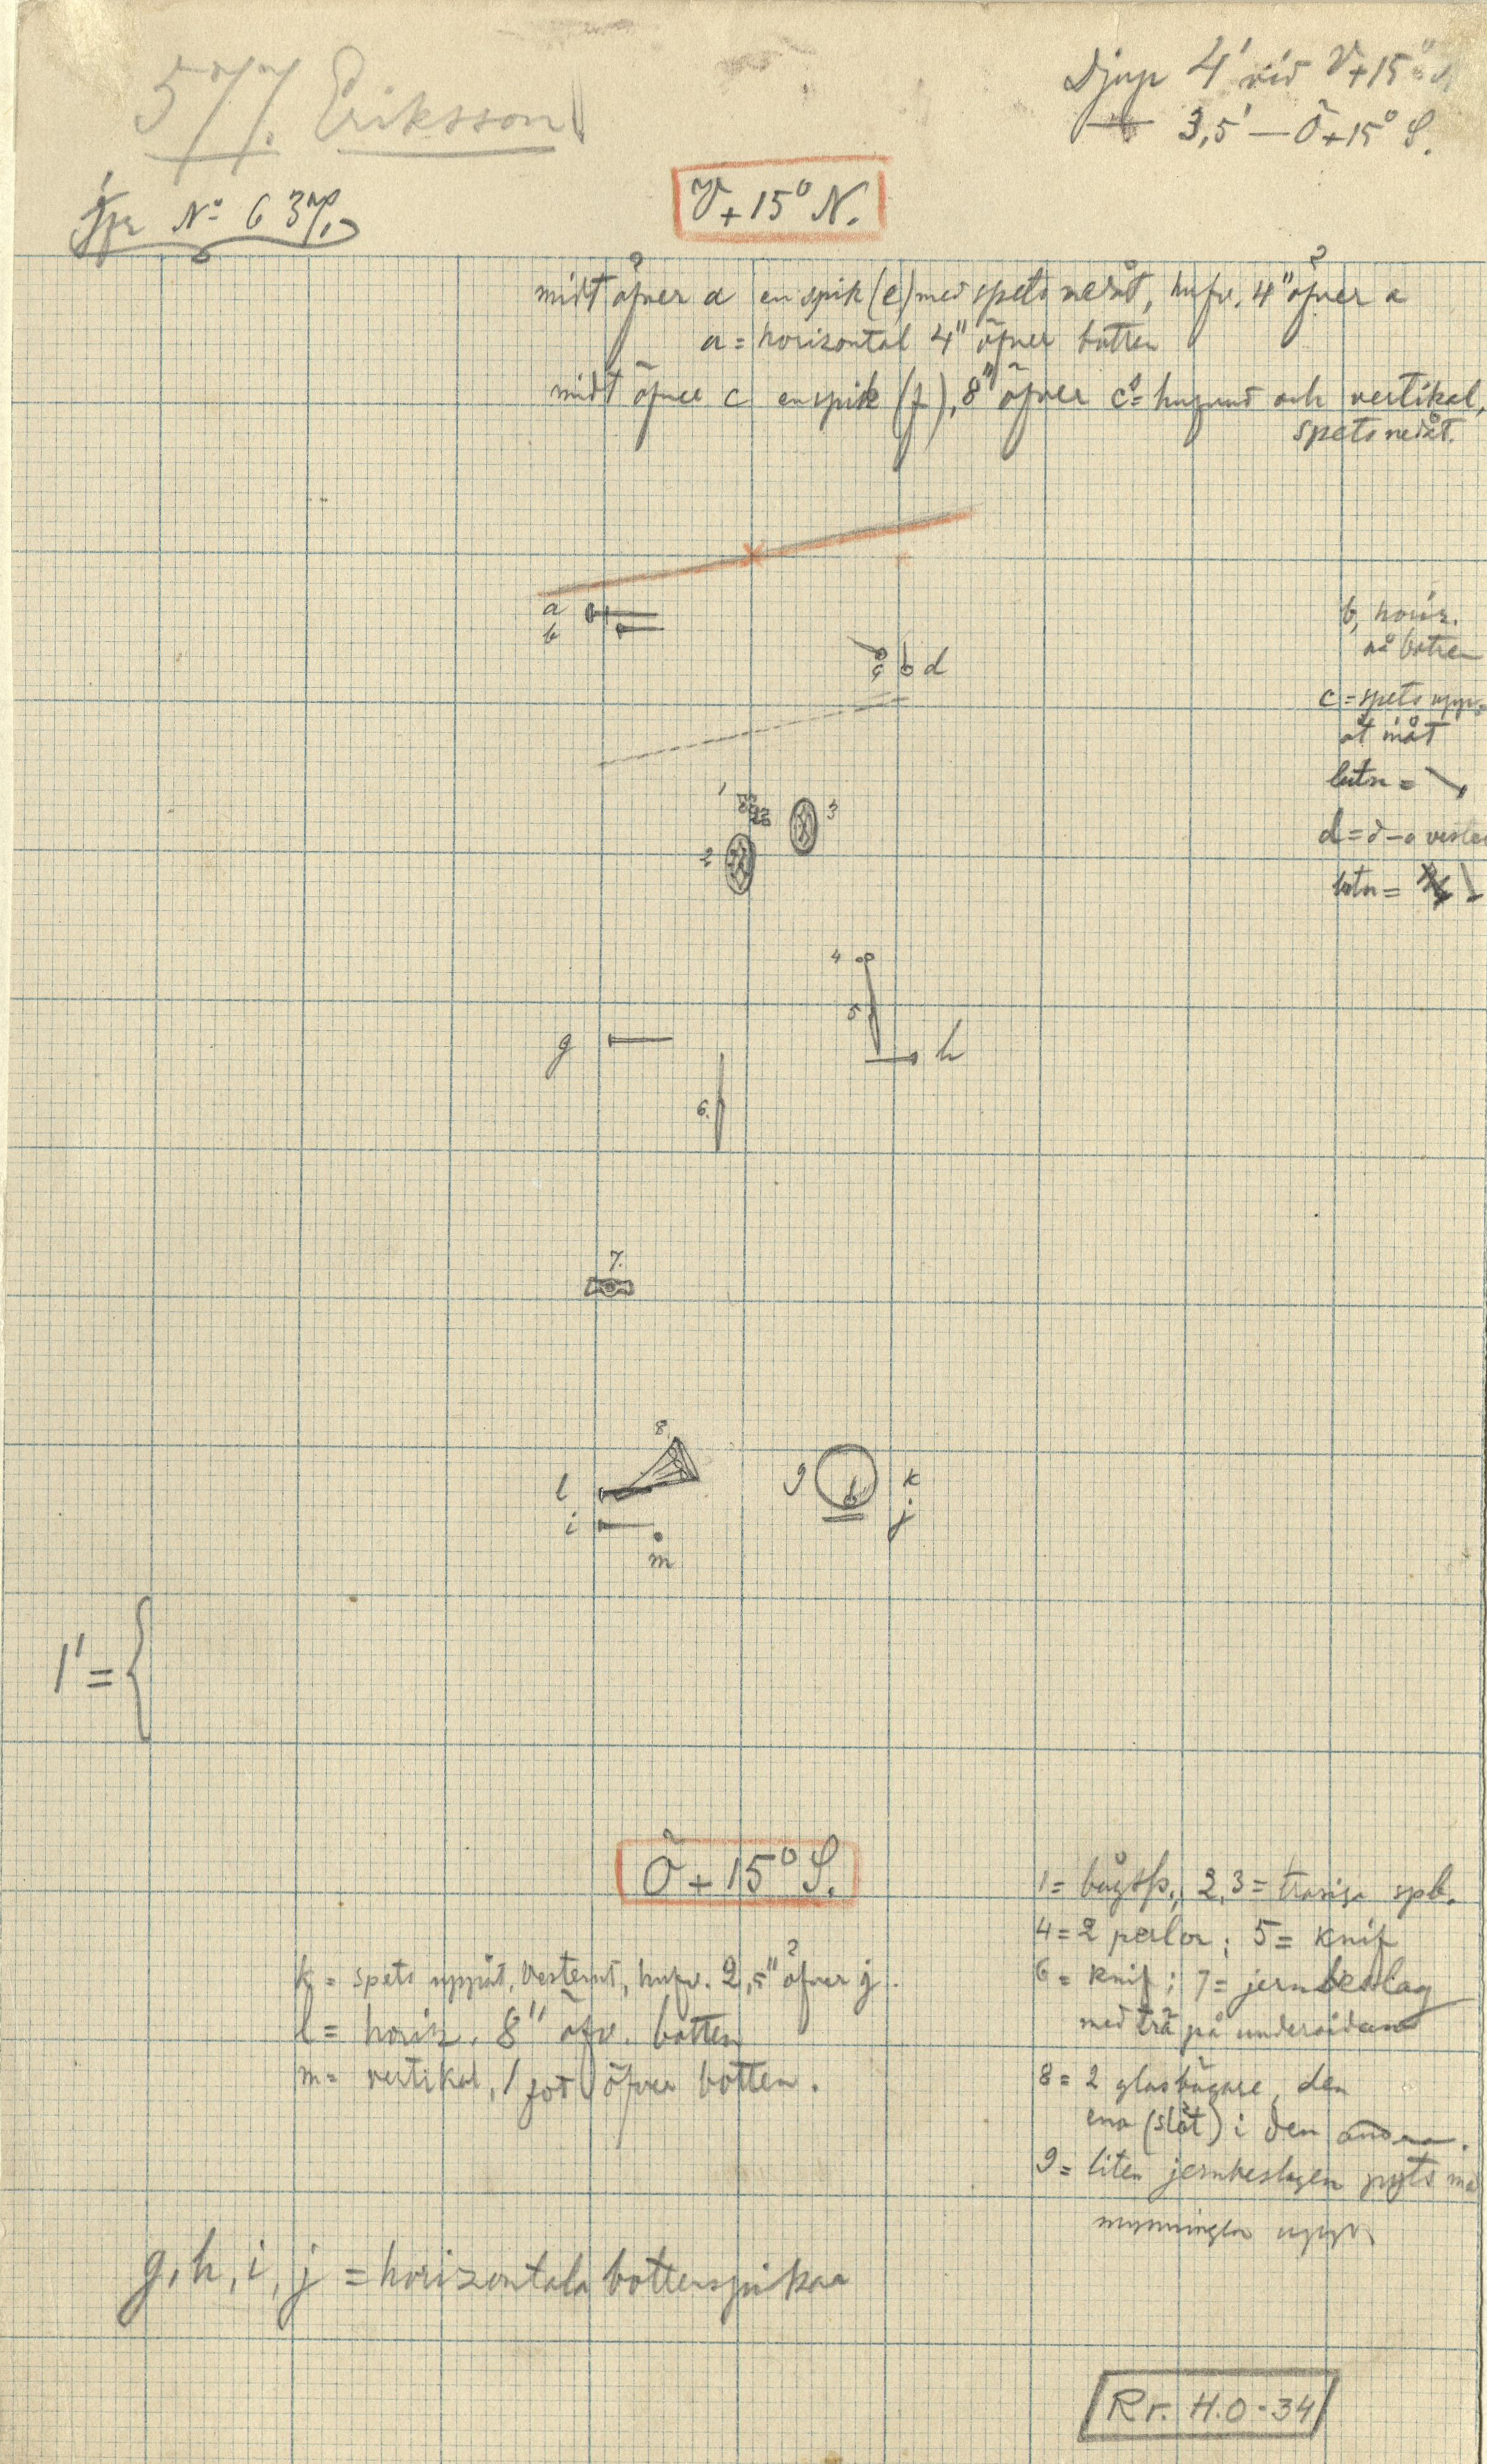 577. Eriksson
Djup 4' vid V+15°
— 3,5' — Ö+15° S.
jfr No 637.
V+15° N.
midt öfver d en spik (e) med spets nedåt, hufv. 4" öfver a
a = horizontal 4" öfver botten
midt öfver c en spik (f), 8" öfver c's hufvud och vertikal,
spets nedåt.
a
b
c d
b, horiz.
på botten
c = spets upp-
åt
lutn =
d = d-o
lutn =
1
2
3
4
5
g
h
6.
7.
8.
l
i
m
9
k
j
1' = {
Ö+15° S.
1 = ; 2,3 = trasiga spb.
4 = 2 perlor; 5 = knif
6 = knif; 7 = jernbeslag
med trä på undersidan
8 = 2 glasbägare, den
ena (slät) i den andra.
9 = liten jernbeslagen pyts
mynningen
k = spets uppåt, vesterut, hufv. 2,5" öfver j.
l = horiz. 8" öfv. botten
m = vertikal, 1 fot öfver botten.
g, h, i, j = horizontala bottenspikar
Rr. H.O-34